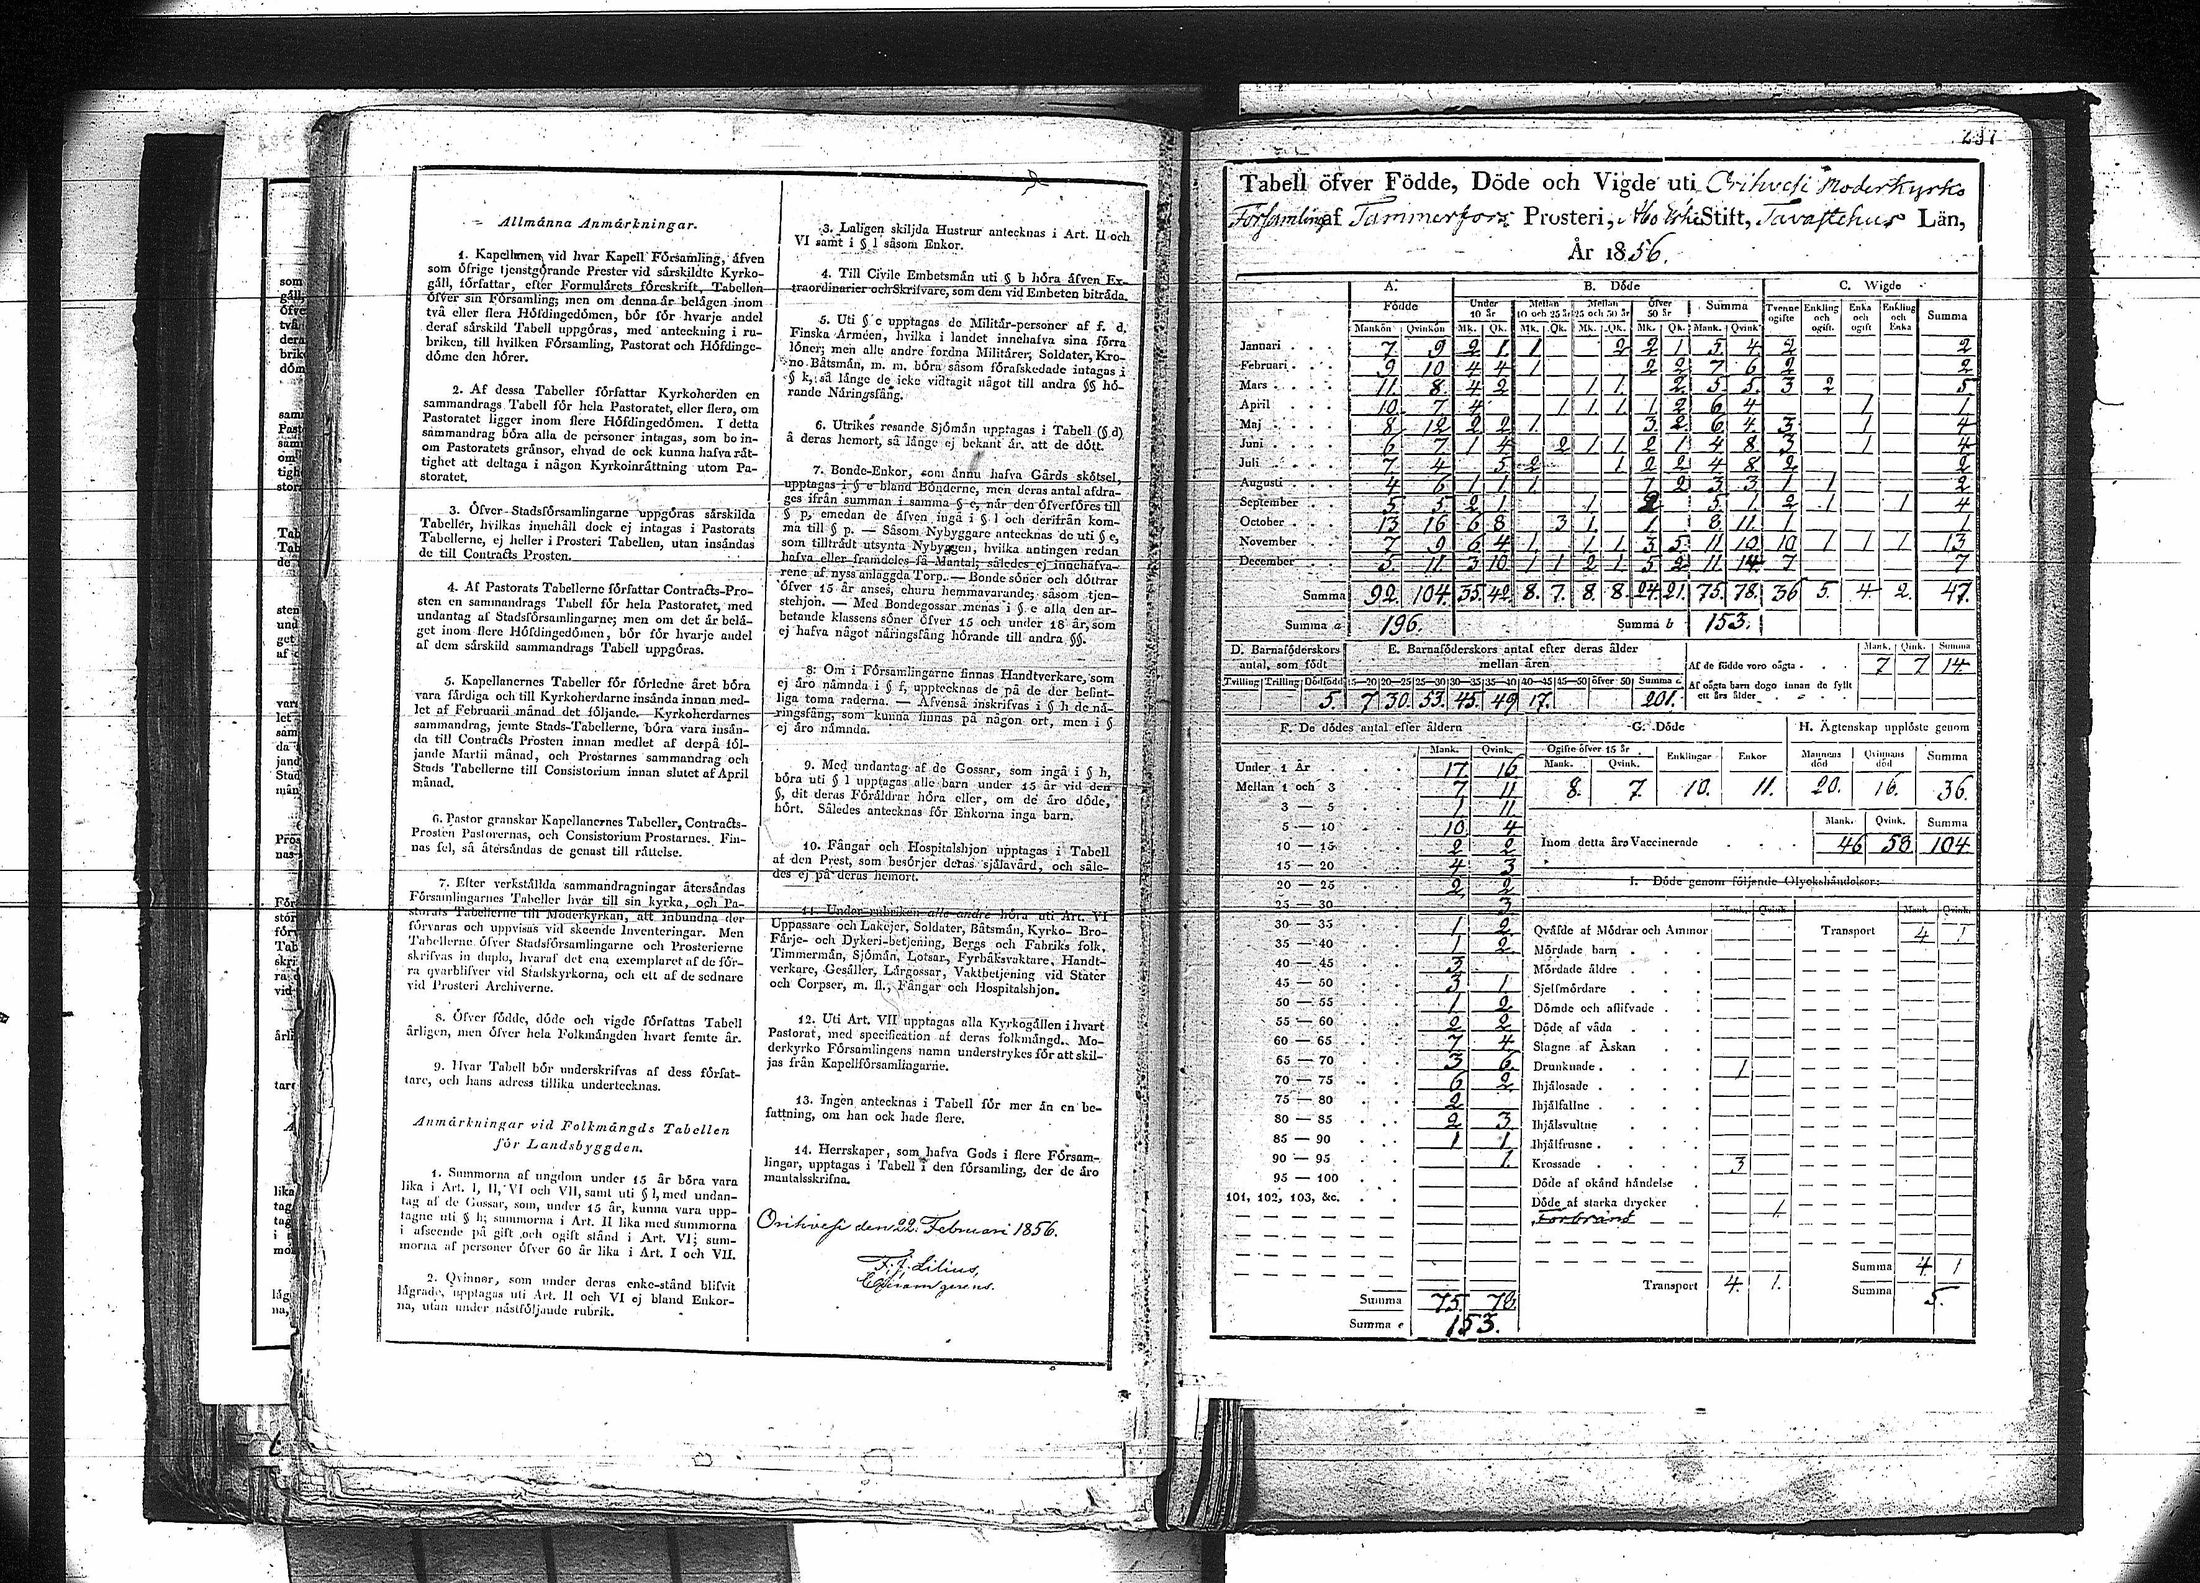 Allmänna Anmärkningar.
1. Kapellanen vid hvar Kapell Församling, äfven
som öfrige tjenstgörande Prester vid särskildte Kyrko-
gäll, författar, efter Formulärets föreskrift, Tabellen
öfver sin Församling; men om denna är belägen inom
två eller flera Höfdingedömen, bör för hvarje andel
deraf särskild Tabell uppgöras, med anteckning i ru-
briken, till hvilken Församling, Pastorat och Höfdinge-
döme den hörer.
2. Af dessa Tabeller författar Kyrkoherden en
sammandrags Tabell för hela Pastoratet, eller flera, om
Pastoratet ligger inom flere Höfdingedömen. I detta
sammandrag böra alla de personer intagas, som bo in-
om Pastoratets gränsor, ehvad de ock kunna hafva rät-
tighet att deltaga i någon Kyrkoinrättning utom Pa-
storatet.
3. Öfver Stadsförsamlingarne uppgöras särskilda
Tabeller, hvilkas innehåll dock ej intagas i Pastorats
Tabellerne, ej heller i Prosteri Tabellen, utan insändas
de till Contracts Prosten.
4. Af Pastorats Tabellerne författar Contracts-Pro-
sten en sammandrags Tabell för hela Pastoratet, med
undantag af Stadsförsamlingarne; men om det är belä-
get inom flere Höfdingedömen, bör för hvarje andel
af dem särskild sammandrags Tabell uppgöras.
5. Kapellanernes Tabeller för förledne året böra
vara färdiga och till Kyrkoherdarne insända innan med-
let af Februarii månad det följande. Kyrkoherdarnes
sammandrag, jemte Stads-Tabellerne, böra vara insän-
da till Contracts Prosten innan medlet af derpå föl-
jande Martii månad, och Prostarnes sammandrag och
Stads Tabellerne till Consistorium innan slutet af April
månad.
6. Pastor granskar Kapellanernes Tabeller, Contracts-
Prosten Pastorernas, och Consistorium Prostarnes. Fin-
nas fel, så återsändas de genast till rättelse.
7. Efter verkställda sammandragningar återsändas
Församlingarnes Tabeller hvar till sin kyrka, och Pa-
storats Tabellerne till Moderkyrkan, att inbundna der
förvaras och uppvisas vid skeende Inventeringar. Men
Tabellerne öfver Stadsförsamlingarne och Prosterierne
skrifvas in duplo, hvaraf det ena exemplaret af de för-
ra qvarblifver vid Stadskyrkorna, och ett af de sednare
vid Prosteri Archiverne.
8. Öfver födde, döde och vigde författas Tabell
årligen, men öfver hela Folkmängden hvart femte år.
9. Hvar Tabell bör underskrifvas af dess förfat-
tare, och hans adress tillika undertecknas.
Anmärkningar vid Folkmängds Tabellen
för Landsbyggden.
1. Summorna af ungdom under 15 år böra vara
lika i Art. I, II, VI och VII, samt uti § l, med undan-
tag af de Gossar, som, under 15 år, kunna vara upp-
tagne uti § h; summorna i Art. II lika med summorna
i afseende på gift och ogift stånd i Art. VI; sum-
morna af personer öfver 60 år lika i Art. I och VII.
2. Qvinnor, som under deras enke-stånd blifvit
lägrade, upptagas uti Art. II och VI ej bland Enkor-
na, utan under nästföljande rubrik.
3. Laligen skiljda Hustrur antecknas i Art. II och
VI samt i § l såsom Enkor.
4. Till Civile Embetsmän uti § b höra äfven Ex-
traordinarier och Skrifvare, som dem vid Embeten biträda.
5. Uti § c upptagas de Militär-personer af f. d.
Finska Arméen, hvilka i landet innehafva sina förra
löner; men alle andre fordna Militärer, Soldater, Kro-
no Båtsmän, m. m. böra såsom förafskedade intagas i
§ k, så länge de icke vidtagit något till andra §§ hö-
rande Näringsfång.
6. Utrikes resande Sjömän upptagas i Tabell (§ d)
å deras hemort, så länge ej bekant är, att de dött.
7. Bonde-Enkor, som ännu hafva Gårds skötsel,
upptagas i § e bland Bönderne, men deras antal afdra-
ges ifrån summan i samma § e, när den öfverföres till
§ p, emedan de äfven ingå i § l och derifrån kom-
ma till § p. — Såsom Nybyggare antecknas de uti § e,
som tillträdt utsynta Nybyggen, hvilka antingen redan
hafva eller framdeles få Mantal; således ej innehafva-
rene af nyss anlaggda Torp. — Bonde söner och döttrar
öfver 15 år anses, ehuru hemmavarande, såsom tjen-
stehjon. — Med Bondegossar menas i § e alla den ar-
betande klassens söner öfver 15 och under 18 år, som
ej hafva något näringsfång hörande till andra §§.
8. Om i Församlingarne finnas Handtverkare, som
ej äro nämnda i § f, upptecknas de på de der befint-
liga toma raderna. — Äfvenså inskrifvas i § h de nä-
ringsfång, som kunna finnas på någon ort, men i §
ej äro nämnda.
9. Med undantag af de Gossar, som ingå i § h,
böra uti § l upptagas alle barn under 15 år vid den
§, dit deras Föräldrar höra eller, om de äro döde,
hört. Således antecknas för Enkorna inga barn.
10. Fångar och Hospitalshjon upptagas i Tabell
af den Prest, som besörjer deras själavård, och såle-
des ej på deras hemort.
11. Under rubriken alle andre höra uti Art. VI
Uppassare och Lakejer, Soldater, Båtsmän, Kyrko- Bro-
Färje- och Dykeri-betjening, Bergs och Fabriks folk,
Timmermän, Sjömän, Lotsar, Fyrbåksvaktare, Handt-
verkare, Gesäller, Lärgossar, Vaktbetjening vid Stater
och Corpser, m. fl., Fångar och Hospitalshjon.
12. Uti Art. VII upptagas alla Kyrkogällen i hvart
Pastorat, med specification af deras folkmängd. Mo-
derkyrko Församlingens namn understrykes för att skil-
jas från Kapellförsamlingarne.
13. Ingen antecknas i Tabell för mer än en be-
fattning, om han ock hade flere.
14. Herrskaper, som hafva Gods i flere Försam-
lingar, upptagas i Tabell i den församling, der de äro
mantalsskrifna.
Orihvesi den 22 Februari 1856.
F. J. Lilius,
Tabell öfver Födde, Döde och Vigde uti Orihvesi Moderkyrko
Församling af Tammerfors Prosteri, Åbo Erke Stift, Tavastehus Län,
År 1856.
A. Födde B. Döde C. Wigde
Under 10 år Mellan 10 och 25 år Mellan 25 och 50 år Öfver 50 år Summa Tvenne ogifte Enkling och ogift. Enka och ogift Enkling och Enka Summa
Mankön Qvinkön Mk. Qk. Mk. Qk. Mk. Qk. Mk. Qk. Mank. Qvink.
Januari 7 9 2 1 1 2 2 1 5 4 2 2
Februari 9 10 4 4 1 2 2 7 6 2 2
Mars 11 8 4 2 1 1 2 5 5 3 2 5
April 10 7 4 1 1 1 1 2 6 4 1 1
Maj 8 12 2 2 1 3 2 6 4 3 1 4
Juni 6 7 1 4 2 1 1 2 1 4 8 3 1 4
Juli 7 4 5 2 1 2 2 4 8 2 2
Augusti 4 6 1 1 1 1 2 3 3 1 1 2
September 5 5 2 1 1 2 5 1 2 1 1 4
October 13 16 6 8 3 1 1 8 11 1 1
November 7 9 6 4 1 1 1 3 5 11 10 10 1 1 1 13
December 5 11 3 10 1 1 2 1 5 2 11 14 7 7
Summa 92 104 35 42 8 7 8 8 24 21 75 78 36 5 4 2 47
Summa a 196. Summa b 153.
D. Barnaföderskors antal, som födt
Tvilling Trilling Dödfödd
5.
E. Barnaföderskors antal efter deras ålder
mellan åren
15—20 20—25 25—30 30—35 35—40 40—45 45—50 öfver 50 Summa c
7 30 53 45 49 17 201.
Mank. Qvink. Summa
Af de födde voro oägta 7 7 14
Af oägta barn dogo innan de fyllt
ett års ålder
F. De dödes antal efter åldern
Mank. Qvink.
Under 1 År 17 16
Mellan 1 och 3 7 11
3 — 5 1 11
5 — 10 10 4
10 — 15 2 2
15 — 20 4 3
20 — 25 2 2
25 — 30 3
30 — 35 1 2
35 — 40 1 2
40 — 45 3
45 — 50 3 1
50 — 55 1 2
55 — 60 2 2
60 — 65 7 4
65 — 70 3 6
70 — 75 6 2
75 — 80 2
80 — 85 2 3
85 — 90 1 1
90 — 95 1
95 — 100
101, 102, 103, &c.
Summa 75 78
Summa e 153.
G. Döde
Ogifte öfver 15 år Enklingar Enkor
Mank. Qvink.
8. 7. 10. 11.
H. Ägtenskap upplöste genom
Mannens död Qvinnans död Summa
20. 16. 36.
Mank. Qvink. Summa
Inom detta år Vaccinerade 46 58 104
I. Döde genom följande Olyckshändelser:
Mank. Qvink. Mank. Qvink.
Qväfde af Mödrar och Ammor Transport 4 1
Mördade barn
Mördade äldre
Sjelfmördare
Dömde och aflifvade
Döde af våda
Slagne af Åskan
Drunknade 1
Ihjälosade
Ihjälfallne
Ihjälsvultne
Ihjälfrusne
Krossade 3
Döde af okänd händelse
Döde af starka drycker 1
Förbränd
Summa 4 1
Transport 4. 1. Summa 5.